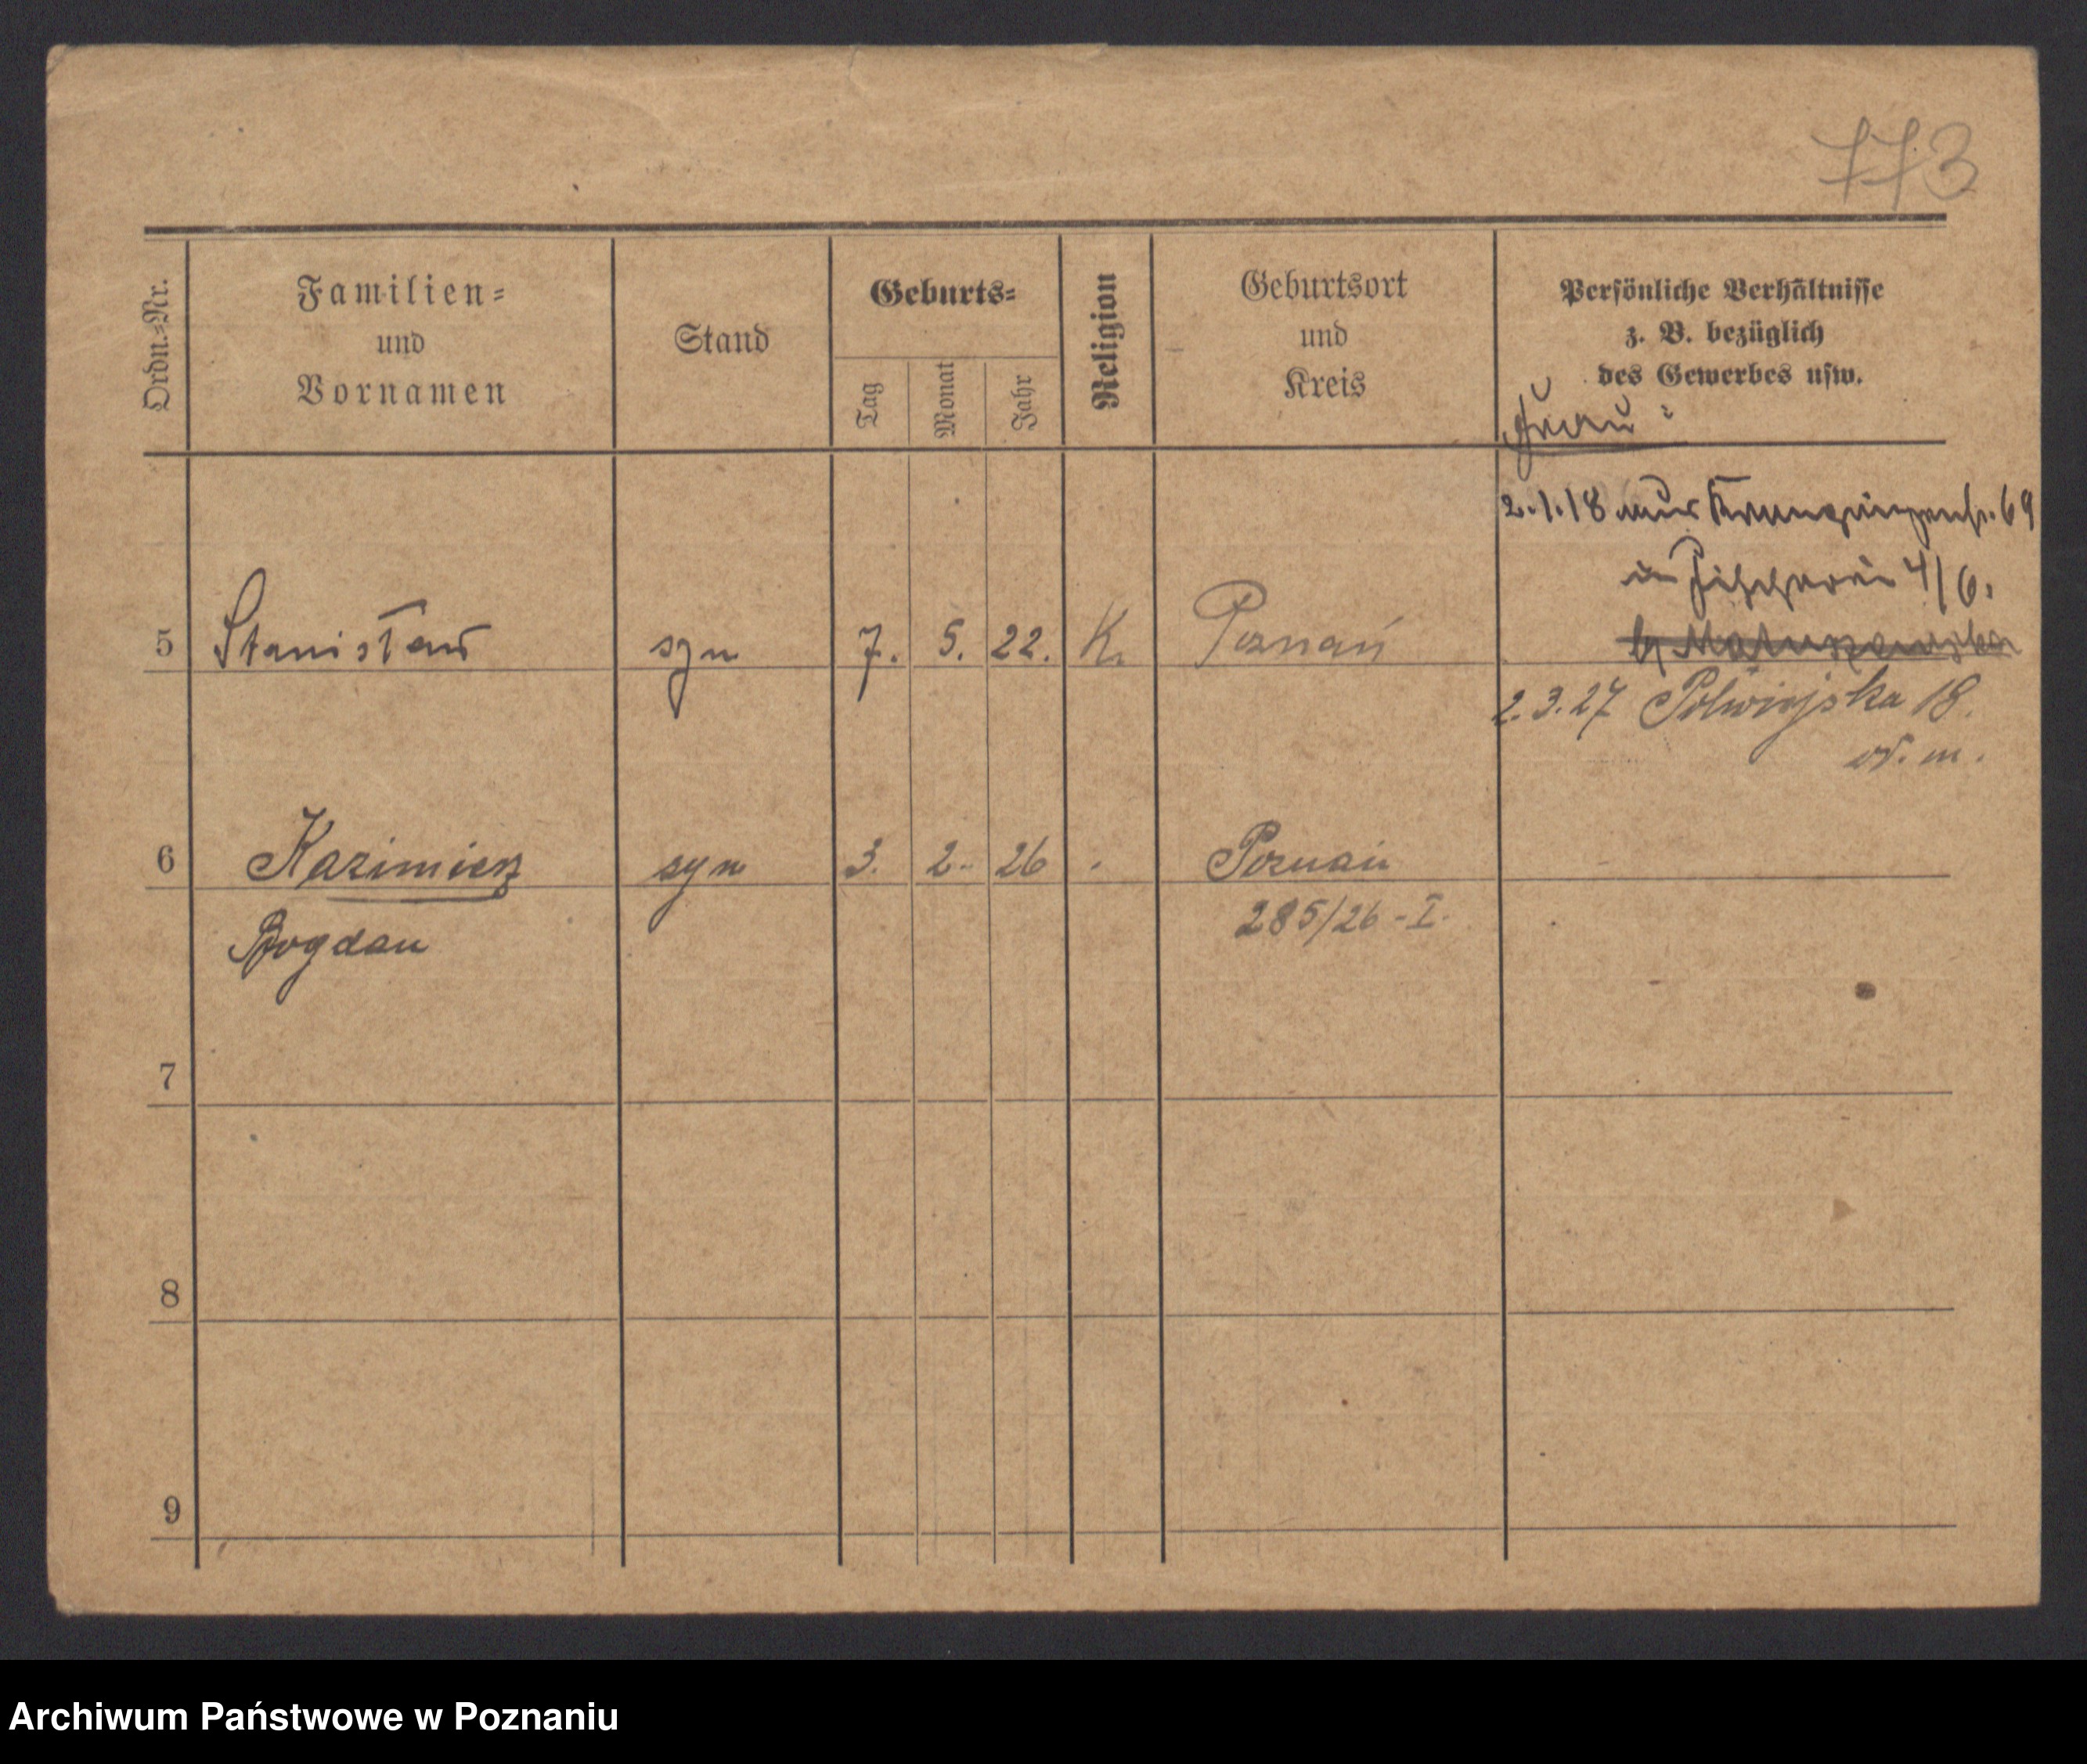 773
Ordn.-Nr.
Familien-
und
Vornamen
Stand
Geburts-
Tag
Monat
Jahr
Religion
Geburtsort
und
Kreis
Persönliche Verhältnisse
z. B. bezüglich
des Gewerbes usw.
Frau:
2.1.18 aus 69
in Fischerei 4/6.
5 Stanisław syn 7. 5. 22. K. Poznań
2.3.27 Półwiejska 18.
6 Kazimierz syn 3. 2. 26 Poznań
285/26-I.
Bogdan
7
8
9
Archiwum Państwowe w Poznaniu